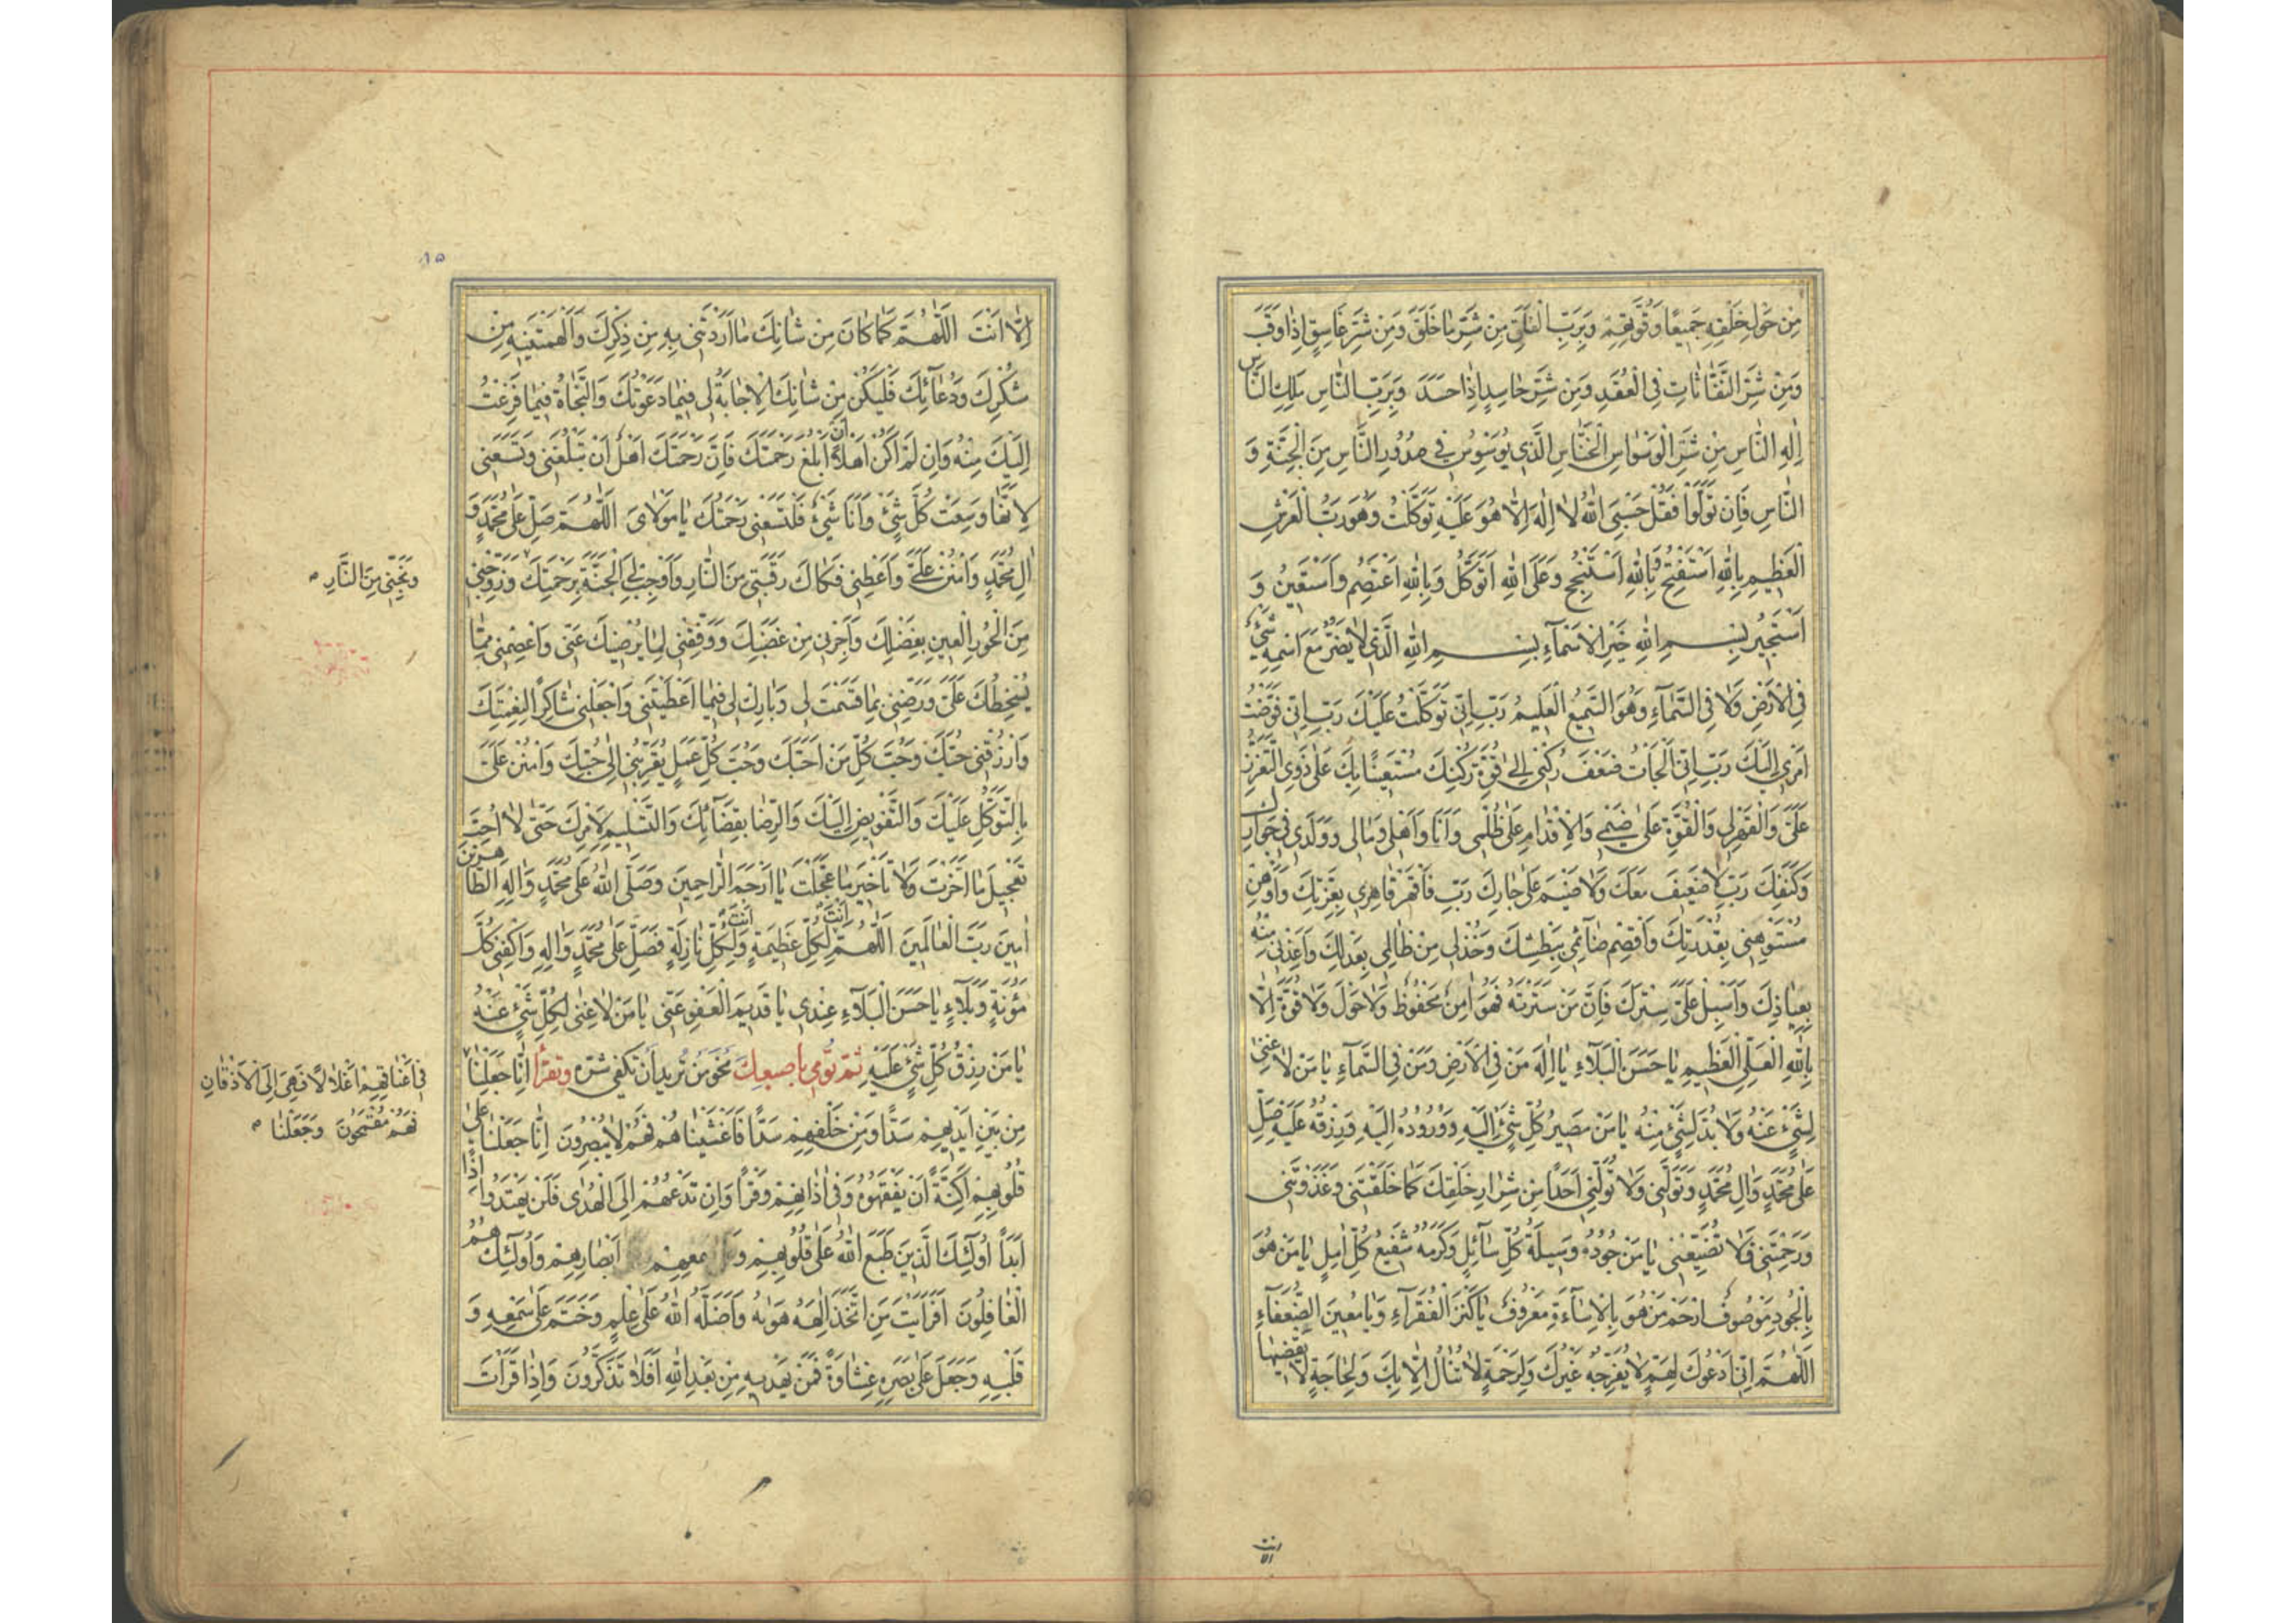 مِنْ حَوْلِ خَلْقِهِ جَمِيعًا وَقُوَّتِهِمْ وَبِرَبِّ الْفَلَقِ مِنْ شَرِّ مَا خَلَقَ وَمِنْ شَرِّ غَاسِقٍ اِذَا وَقَبَ
وَمِنْ شَرِّ النَّفَّاثَاتِ فِي الْعُقَدِ وَمِنْ شَرِّ حَاسِدٍ اِذَا حَسَدَ وَبِرَبِّ النَّاسِ مَلِكِ النَّاسِ
اِلٰهِ النَّاسِ مِنْ شَرِّ الْوَسْوَاسِ الْخَنَّاسِ الَّذِي يُوَسْوِسُ فِي صُدُورِ النَّاسِ مِنَ الْجِنَّةِ وَ
النَّاسِ فَاِنْ تَوَلَّوْا فَقُلْ حَسْبِيَ اللهُ لَا اِلٰهَ اِلَّا هُوَ عَلَيْهِ تَوَكَّلْتُ وَهُوَ رَبُّ الْعَرْشِ
الْعَظِيمِ بِاللهِ اَسْتَفْتِحُ وَبِاللهِ اَسْتَنْجِحُ وَعَلَى اللهِ اَتَوَكَّلُ وَبِاللهِ اَعْتَصِمُ وَاَسْتَعِينُ وَ
اَسْتَجِيرُ بِسْمِ اللهِ خَيْرِ الْاَسْمَاءِ بِسْمِ اللهِ الَّذِي لَا يَضُرُّ مَعَ اسْمِهِ شَيْءٌ
فِي الْاَرْضِ وَلَا فِي السَّمَاءِ وَهُوَ السَّمِيعُ الْعَلِيمُ رَبِّ اِنِّي تَوَكَّلْتُ عَلَيْكَ رَبِّ اِنِّي فَوَّضْتُ
اَمْرِي اِلَيْكَ رَبِّ اِنِّي اَلْجَأْتُ ضَعْفَ رُكْنِي اِلَى قُوَّةِ رُكْنِكَ مُسْتَعِينًا بِكَ عَلَى ذَوِي التَّعَزُّزِ
عَلَيَّ وَالْقَهْرِ لِي وَالْقُوَّةِ عَلَى ضَيْمِي وَالْاِقْدَامِ عَلَى ظُلْمِي وَاَنَا وَاَهْلِي وَمَالِي وَوَلَدِي فِي جِوَارِكَ
وَكَنَفِكَ رَبِّ لَا ضَعِيفَ مَعَكَ وَلَا ضَيْمَ عَلَى جَارِكَ رَبِّ فَاقْهَرْ قَاهِرِي بِعِزَّتِكَ وَاَوْهِنْ
مُسْتَوْهِنِي بِقُدْرَتِكَ وَاقْصِمْ ضَائِمِي بِبَطْشِكَ وَخُذْ لِي مِنْ ظَالِمِي بِعَدْلِكَ وَاَعِذْنِي مِنْهُ
بِعِيَاذِكَ وَاَسْبِلْ عَلَيَّ سِتْرَكَ فَاِنَّ مَنْ سَتَرْتَهُ فَهُوَ اٰمِنٌ مَحْفُوظٌ وَلَا حَوْلَ وَلَا قُوَّةَ اِلَّا
بِاللهِ الْعَلِيِّ الْعَظِيمِ يَا حَسَنَ الْبَلَاءِ يَا اِلٰهَ مَنْ فِي الْاَرْضِ وَمَنْ فِي السَّمَاءِ يَا مَنْ لَا غِنَى
لِشَيْءٍ عَنْهُ وَلَا بُدَّ لِشَيْءٍ مِنْهُ يَا مَنْ مَصِيرُ كُلِّ شَيْءٍ اِلَيْهِ وَوُرُودُهُ اِلَيْهِ وَرِزْقُهُ عَلَيْهِ صَلِّ
عَلَى مُحَمَّدٍ وَاٰلِ مُحَمَّدٍ وَتَوَلَّنِي وَلَا تُوَلِّنِي اَحَدًا مِنْ شِرَارِ خَلْقِكَ كَمَا خَلَقْتَنِي وَغَذَوْتَنِي
وَرَحِمْتَنِي فَلَا تُضَيِّعْنِي يَا مَنْ جُودُهُ وَسِيلَةُ كُلِّ سَائِلٍ وَكَرَمُهُ شَفِيعُ كُلِّ اٰمِلٍ يَا مَنْ هُوَ
بِالْجُودِ مَوْصُوفٌ ارْحَمْ مَنْ هُوَ بِالْاِسَاءَةِ مَعْرُوفٌ يَا كَنْزَ الْفُقَرَاءِ وَيَا مُعِينَ الضُّعَفَاءِ
اَللّٰهُمَّ اِنِّي اَدْعُوكَ لِهَمٍّ لَا يُفَرِّجُهُ غَيْرُكَ وَلِرَحْمَةٍ لَا تُنَالُ اِلَّا بِكَ وَلِحَاجَةٍ لَا يَقْضِيهَا
الا انت
۱۵
اِلَّا اَنْتَ اَللّٰهُمَّ كَمَا كَانَ مِنْ شَانِكَ مَا اَرَدْتَنِي بِهِ مِنْ ذِكْرِكَ وَاَلْهَمْتَنِيهِ مِنْ
شُكْرِكَ وَدُعَائِكَ فَلْيَكُنْ مِنْ شَانِكَ الْاِجَابَةُ لِي فِيمَا دَعَوْتُكَ وَالنَّجَاةُ فِيمَا فَزِعْتُ
اِلَيْكَ مِنْهُ وَاِنْ لَمْ اَكُنْ اَهْلًا اَنْ اَبْلُغَ رَحْمَتَكَ فَاِنَّ رَحْمَتَكَ اَهْلٌ اَنْ تَبْلُغَنِي وَتَسَعَنِي
لِاَنَّهَا وَسِعَتْ كُلَّ شَيْءٍ وَاَنَا شَيْءٌ فَلْتَسَعْنِي رَحْمَتُكَ يَا مَوْلَايَ اَللّٰهُمَّ صَلِّ عَلَى مُحَمَّدٍ وَ
اٰلِ مُحَمَّدٍ وَامْنُنْ عَلَيَّ وَاَعْطِنِي فَكَاكَ رَقَبَتِي مِنَ النَّارِ وَاَوْجِبْ لِيَ الْجَنَّةَ بِرَحْمَتِكَ وَزَوِّجْنِي
وَنَجِّنِي مِنَ النَّارِ
مِنَ الْحُورِ الْعِينِ بِفَضْلِكَ وَاَجِرْنِي مِنْ غَضَبِكَ وَوَفِّقْنِي لِمَا يُرْضِيكَ عَنِّي وَاعْصِمْنِي مِمَّا
يُسْخِطُكَ عَلَيَّ وَرَضِّنِي بِمَا قَسَمْتَ لِي وَبَارِكْ لِي فِيمَا اَعْطَيْتَنِي وَاجْعَلْنِي شَاكِرًا لِنِعْمَتِكَ
وَارْزُقْنِي حُبَّكَ وَحُبَّ كُلِّ مَنْ اَحَبَّكَ وَحُبَّ كُلِّ عَمَلٍ يُقَرِّبُنِي اِلَى حُبِّكَ وَامْنُنْ عَلَيَّ
بِالتَّوَكُّلِ عَلَيْكَ وَالتَّفْوِيضِ اِلَيْكَ وَالرِّضَا بِقَضَائِكَ وَالتَّسْلِيمِ لِاَمْرِكَ حَتَّى لَا اُحِبَّ
تَعْجِيلَ مَا اَخَّرْتَ وَلَا تَاْخِيرَ مَا عَجَّلْتَ يَا اَرْحَمَ الرَّاحِمِينَ وَصَلَّى اللهُ عَلَى مُحَمَّدٍ وَاٰلِهِ الطَّاهِرِينَ
اٰمِينَ رَبَّ الْعَالَمِينَ اَللّٰهُمَّ اَنْتَ لِكُلِّ عَظِيمَةٍ وَاَنْتَ لِكُلِّ نَازِلَةٍ فَصَلِّ عَلَى مُحَمَّدٍ وَاٰلِهِ وَاكْفِنِي كُلَّ
مَؤُنَةٍ وَبَلَاءٍ يَا حَسَنَ الْبَلَاءِ عِنْدِي يَا قَدِيمَ الْعَفْوِ عَنِّي يَا مَنْ لَا غِنَى لِكُلِّ شَيْءٍ عَنْهُ
يَا مَنْ رِزْقُ كُلِّ شَيْءٍ عَلَيْهِ ثُمَّ تُومِي بِاصْبِعِكَ نَحْوَ مَنْ تُرِيدُ اَنْ تُكْفَى شَرَّهُ وَتَقْرَأُ اِنَّا جَعَلْنَا
فِي اَعْنَاقِهِمْ اَغْلَالًا فَهِيَ اِلَى الْاَذْقَانِ
فَهُمْ مُقْمَحُونَ وَجَعَلْنَا
مِنْ بَيْنِ اَيْدِيهِمْ سَدًّا وَمِنْ خَلْفِهِمْ سَدًّا فَاَغْشَيْنَاهُمْ فَهُمْ لَا يُبْصِرُونَ اِنَّا جَعَلْنَا عَلَى
قُلُوبِهِمْ اَكِنَّةً اَنْ يَفْقَهُوهُ وَفِي اٰذَانِهِمْ وَقْرًا وَاِنْ تَدْعُهُمْ اِلَى الْهُدَى فَلَنْ يَهْتَدُوا اِذًا
اَبَدًا اُولٰئِكَ الَّذِينَ طَبَعَ اللهُ عَلَى قُلُوبِهِمْ وَ اَبْصَارِهِمْ وَاُولٰئِكَ هُمُ
الْغَافِلُونَ اَفَرَاَيْتَ مَنِ اتَّخَذَ اِلٰهَهُ هَوٰيهُ وَاَضَلَّهُ اللهُ عَلَى عِلْمٍ وَخَتَمَ عَلَى سَمْعِهِ وَ
قَلْبِهِ وَجَعَلَ عَلَى بَصَرِهِ غِشَاوَةً فَمَنْ يَهْدِيهِ مِنْ بَعْدِ اللهِ اَفَلَا تَذَكَّرُونَ وَاِذَا قَرَاْتَ